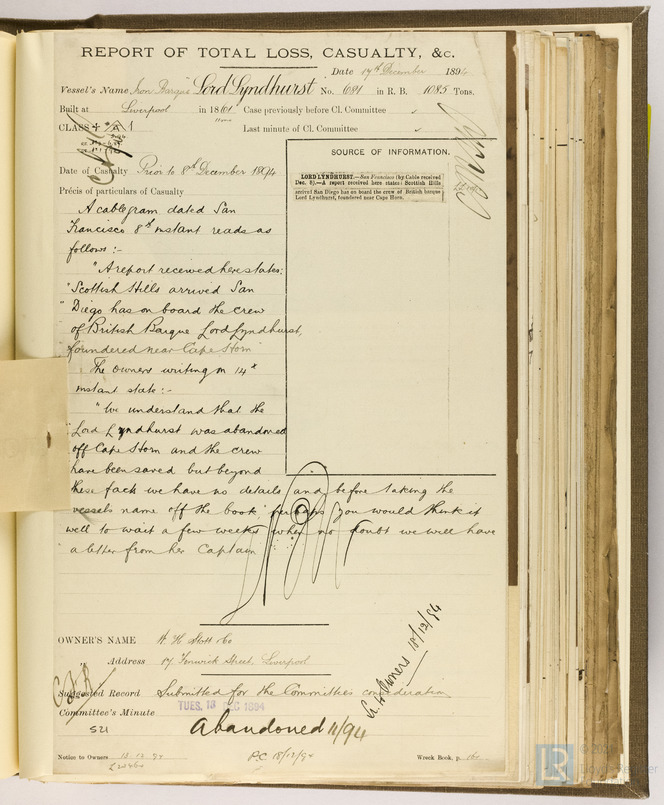 REPORT OF TOTAL LOSS, CASUALTY, &c.
Date 17th December 1894
Vessel's Name Iron Barque Lord Lyndhurst No. 691 in R. B. 1085 Tons.
Built at Liverpool in 1861 Case previously before Cl. Committee
CLASS + A 1 Last minute of Cl. Committee
SOURCE OF INFORMATION.
LORD LYNDHURST.—San Francisco (by Cable received Dec. 8).—A report received here states: Scottish Hills
arrived San Diego has on board the crew of British barque
Lord Lyndhurst, foundered near Cape Horn.
Date of Casualty Prior to 8th December 1894
Précis of particulars of Casualty
A cablegram dated San
Francisco 8th instant reads as
follows:-
"A report received here states:
"Scottish Hills arrived San
"Diego has on board the crew
of British Barque Lord Lyndhurst,
foundered near Cape Horn"
The owners writing on 14th
instant state:-
"We understand that the
"Lord Lyndhurst was abandoned
off Cape Horn and the crew
have been saved but beyond
these facts we have no details and before taking the
vessels name off the book perhaps you would think it
well to wait a few weeks when no doubt we will have
a letter from her Captain
OWNER'S NAME W H Stott & Co
" Address 17 Fenwick Street, Liverpool
Lr. to Owners 18/12/94
Suggested Record Submitted for the Committee's consideration
Committee's Minute TUES. 18 DEC 1894
521 Abandoned 11/94
Notice to Owners 18.12.94 P.C. 18/12/94 Wreck Book, p. 160
LR